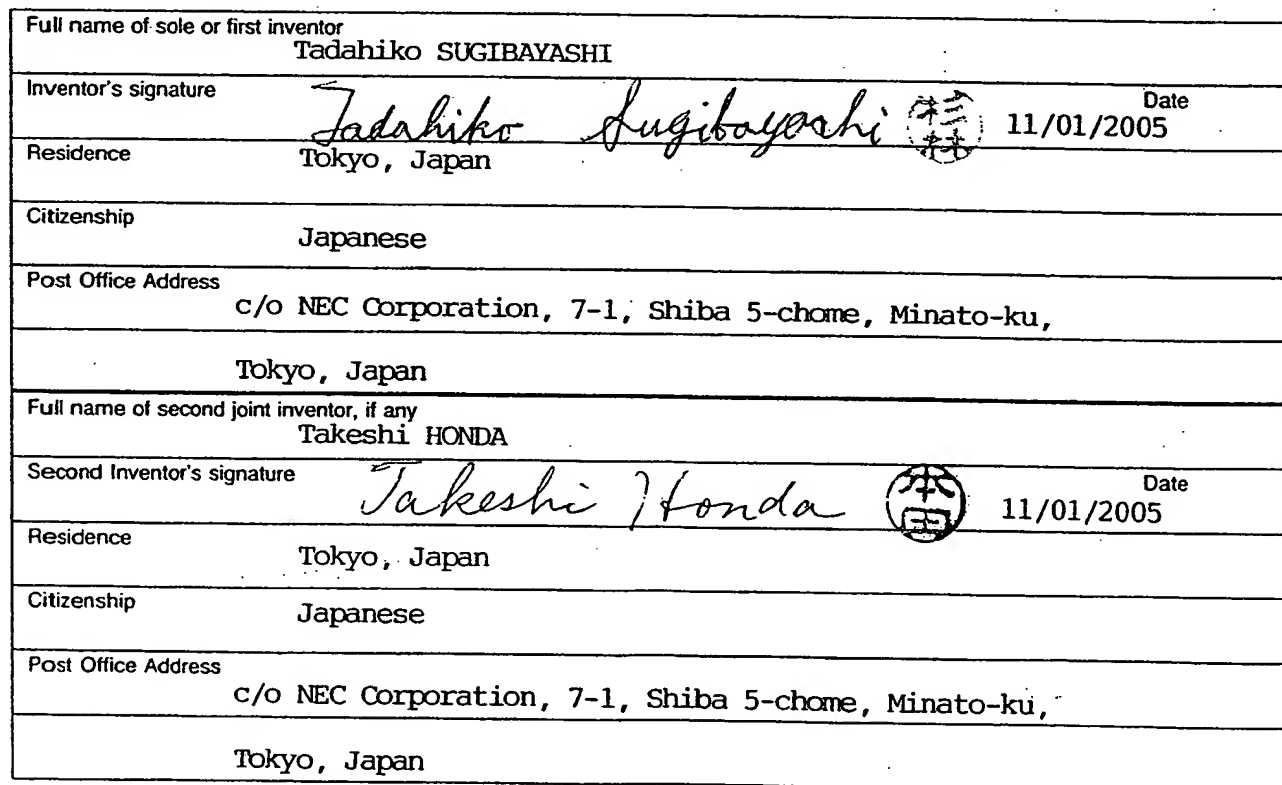 Full name of sole or first inventor
Tadahiko SUGIBAYASHI
Inventor's signature Tadahiko Sugibayashi 杉林 Date 11/01/2005
Residence Tokyo, Japan
Citizenship Japanese
Post Office Address
c/o NEC Corporation, 7-1, Shiba 5-chome, Minato-ku,
Tokyo, Japan
Full name of second joint inventor, if any
Takeshi HONDA
Second Inventor's signature Takeshi Honda 本田 Date 11/01/2005
Residence Tokyo, Japan
Citizenship Japanese
Post Office Address
c/o NEC Corporation, 7-1, Shiba 5-chome, Minato-ku,
Tokyo, Japan